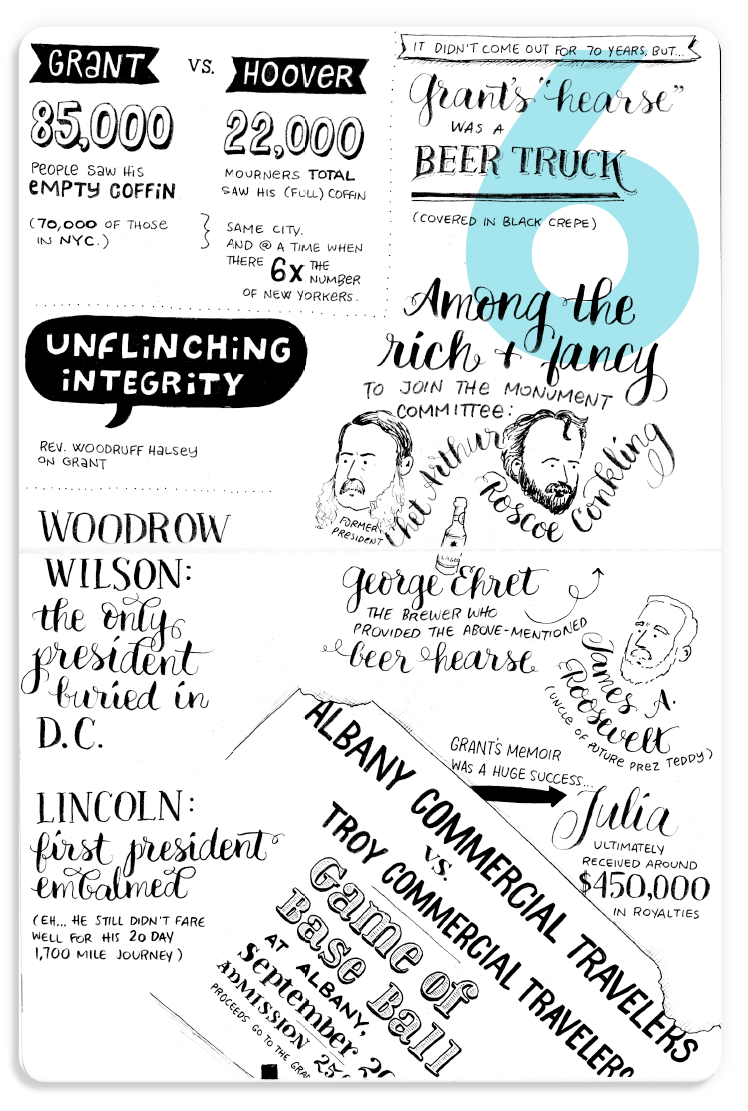 GRANT VS. HOOVER
85,000
PEOPLE SAW HIS
EMPTY COFFIN
(70,000 OF THOSE
IN NYC.)
22,000
MOURNERS TOTAL
SAW HIS (FULL) COFFIN
SAME CITY.
AND @ A TIME WHEN
THERE 6X THE
NUMBER
OF NEW YORKERS.
IT DIDN'T COME OUT FOR 70 YEARS, BUT...
Grant's "hearse"
WAS A
BEER TRUCK
(COVERED IN BLACK CREPE)
6
UNFLINCHING
INTEGRITY
REV. WOODRUFF HALSEY
ON GRANT
Among the
rich + fancy
TO JOIN THE MONUMENT
COMMITTEE:
Chet Arthur
FORMER
PRESIDENT
Roscoe Conkling
LAGER
George Ehret
THE BREWER WHO
PROVIDED THE ABOVE-MENTIONED
beer hearse
James A.
Roosevelt
(UNCLE OF FUTURE PREZ TEDDY)
WOODROW
WILSON:
the only
president
buried in
D.C.
LINCOLN:
first president
embalmed
(EH... HE STILL DIDN'T FARE
WELL FOR HIS 20 DAY
1,700 MILE JOURNEY)
GRANT'S MEMOIR
WAS A HUGE SUCCESS...
Julia
ULTIMATELY
RECEIVED AROUND
$450,000
IN ROYALTIES
ALBANY COMMERCIAL TRAVELERS
VS.
TROY COMMERCIAL TRAVELERS
Game of
Base Ball
AT ALBANY,
September
ADMISSION
PROCEEDS GO TO THE